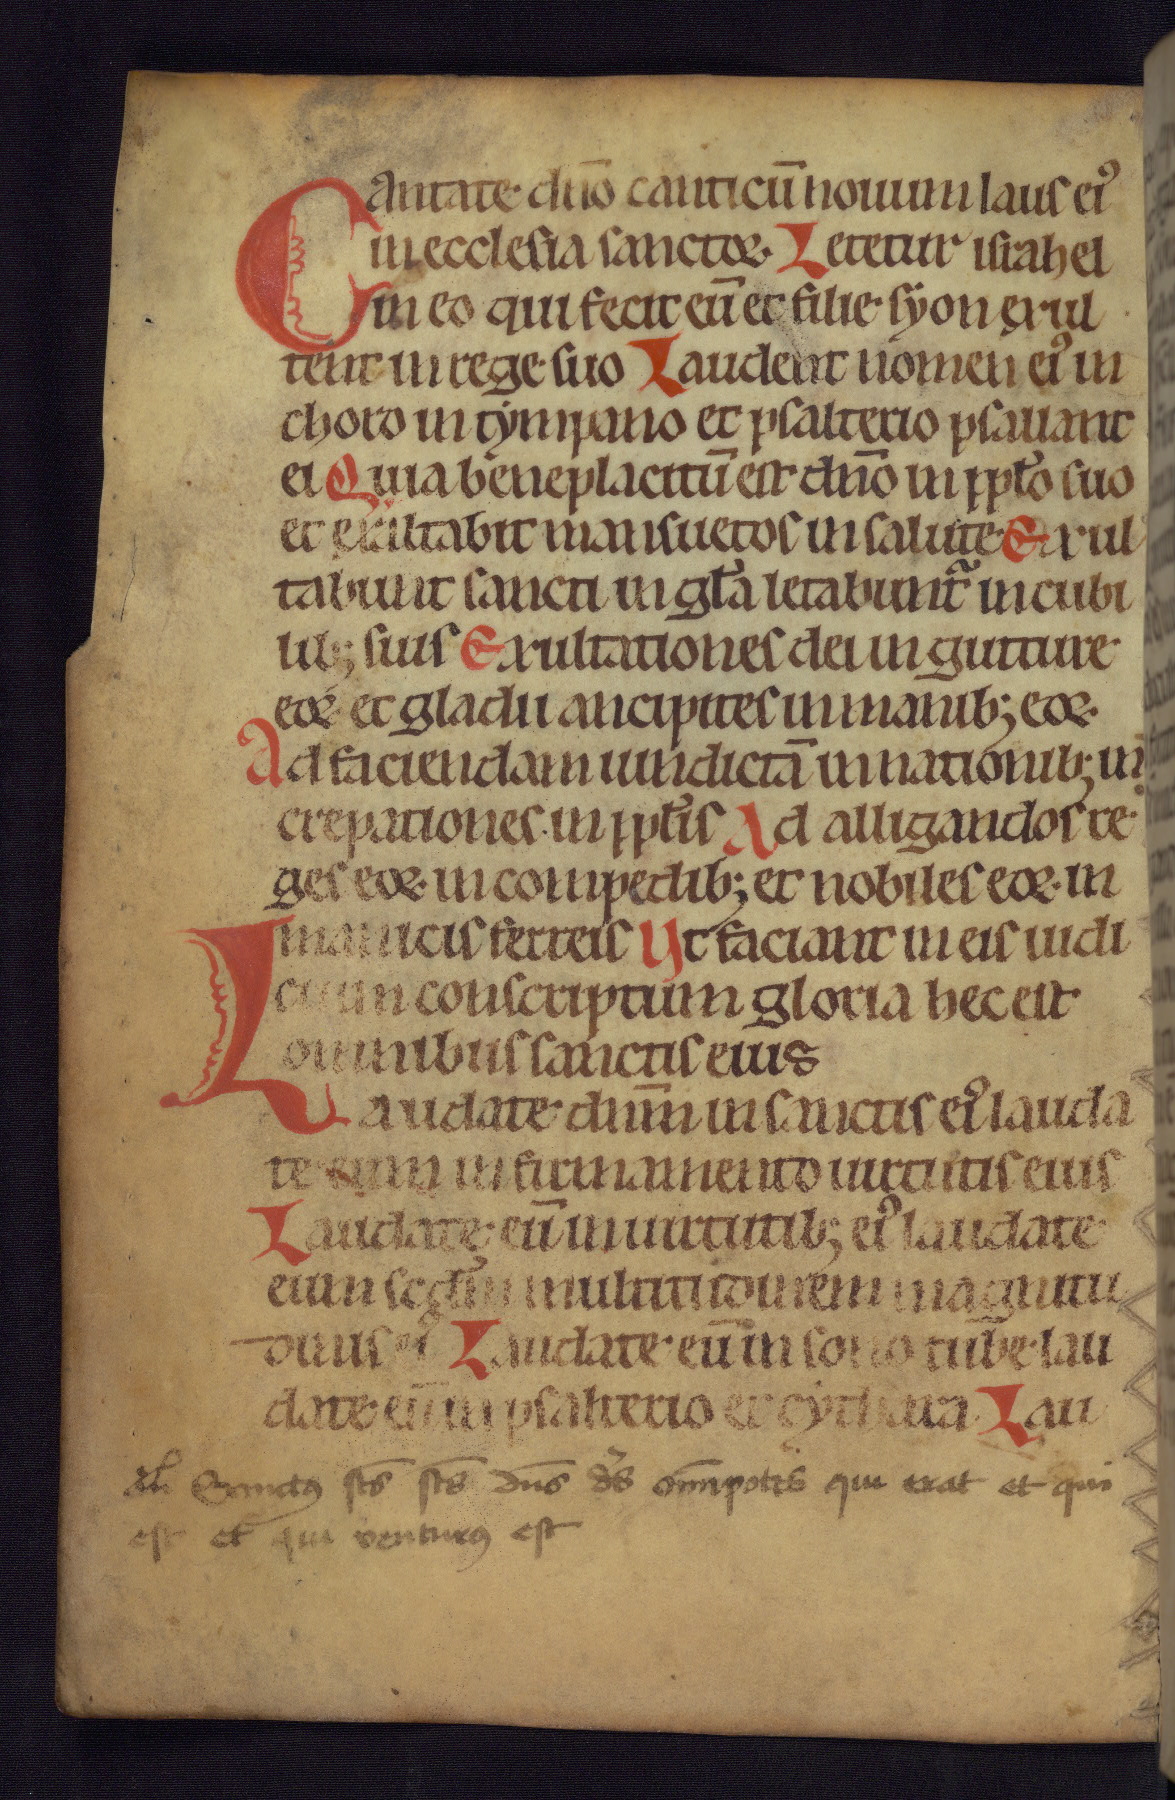 Cantate dn̄o canticū nouum laus eiꝰ
in ecclesia sanctoꝝ. Letetur israhel
in eo qui fecit eū et filie syon exul
tent in rege suo Laudent nomen eiꝰ in
choro in tympano et psalterio psallant
ei Quia beneplacitū est dn̄o in ppl̄o suo
et exaltabit mansuetos in salute Exul
tabunt sancti in gl̄a letabuntᷓ in cubi
lib; suis Exultationes dei in gutture
eoꝝ et gladii ancipites in manib; eoꝝ
Ad faciendam uindictā in nationib; in
crepationes in ppl̄is Ad alligandos re
ges eoꝝ in compedib; et nobiles eoꝝ in
manicis ferreis Ut faciant in eis iudi
cium conscriptum gloria hec est
omnibus sanctis eius
Laudate dnm̄ in sanctis eiꝰ lauda
te eum in firmamento uirtutis eius
Laudate eū in uirtutib; eiꝰ laudate
eum scdm̄ multitudinem magnitu
dinis eiꝰ Laudate eū in sono tube lau
date eū in psalterio et cythara Lau
Sanctꝰ sc̄s sc̄s dn̄s ds̄ omp̄otēs qui erat et qui
est et qui venturꝰ est